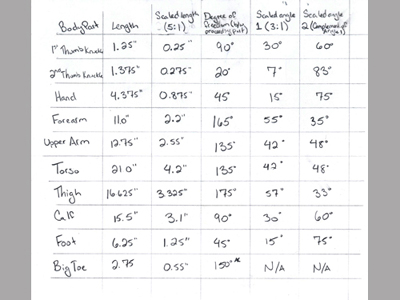 Body Part Length Scaled length (5:1) Degree of Freedom Scaled angle 1 (3:1) Scaled angle 2 (Complement of Angle 1)
1st Thumb Knuckle 1.25" 0.25" 90° 30° 60°
2nd Thumb Knuckle 1.375" 0.275" 20° 7° 83°
Hand 4.375" 0.875" 45° 15° 75°
Forearm 11.0" 2.2" 165° 55° 35°
Upper Arm 12.75" 2.55" 135° 42° 48°
Torso 21.0" 4.2" 135° 42° 48°
Thigh 16.625" 3.325" 175° 57° 33°
Calf 15.5" 3.1" 90° 30° 60°
Foot 6.25" 1.25" 45° 15° 75°
Big Toe 2.75 0.55" 150° N/A N/A